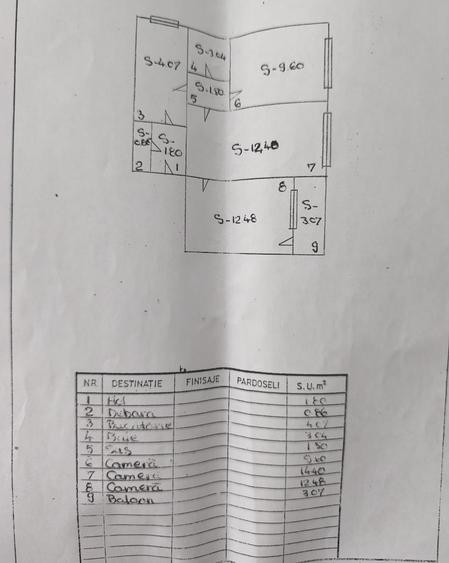 S-3.04
S-4.07
4
S-9.60
S-1.80
5
6
3
S-
0.86
S-
1.80
S-12.48
2
1
7
8
S-12.48
S-
3.07
9
NR. DESTINATIE FINISAJE PARDOSELI S.U. m²
1 Hol 1.80
2 Debara 0.86
3 Bucatarie 4.07
4 Baie 3.04
5 1.80
6 Cameră 9.60
7 Cameră 14.40
8 Cameră 12.48
9 Balcon 3.07